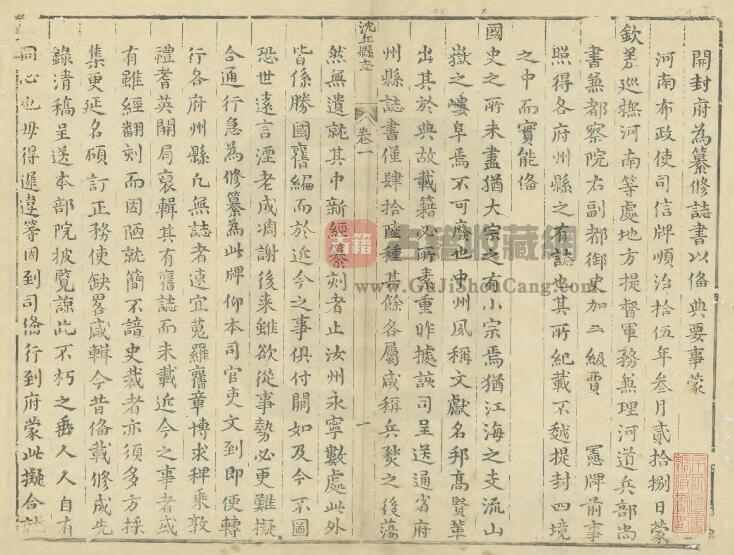 開封府為纂修誌書以俻典要事蒙
河南布政使司信牌順治拾伍年叁月貳拾捌日蒙
欽差巡撫河南等處地方提督軍務兼理河道兵部尚
書兼都察院右副都御史加二級賈 憲牌前事
照得各府州縣之有誌也其所紀載不越提封四境
之中而實能俻
國史之所未盡猶大宗之有小宗焉猶江海之支流山
嶽之嶁阜焉不可廢也中州風稱文獻名邦高賢輩
出其於典故載籍必所素重昨據該司呈送通省府
州縣誌書僅肆拾陸種其餘各屬咸稱兵燹之後蕩
沈丘縣志
卷一
一
然無遺就其中新經纂刻者止汝州永寧數處此外
皆係勝國舊編而於近今之事俱付闕如及今不圖
恐世遠言湮老成凋謝後來雖欲從事勢必更難擬
合通行急為修纂為此牌仰本司官吏文到即便轉
行各府州縣凡無誌者速宜蒐羅舊章博求稗乘敦
禮耆英開局裒輯其有舊誌而未載近今之事者或
有雖經翻刻而因陋就簡不諳史裁者亦須多方採
集更延名碩訂正務使缺畧咸輯今昔俻載修成先
錄清稿呈送本部院披覽諒此不朽之垂人人自有
同心也毋得遲違等因到司俻行到府蒙此擬合就
古籍收藏網
www.GuJiShouCang.com